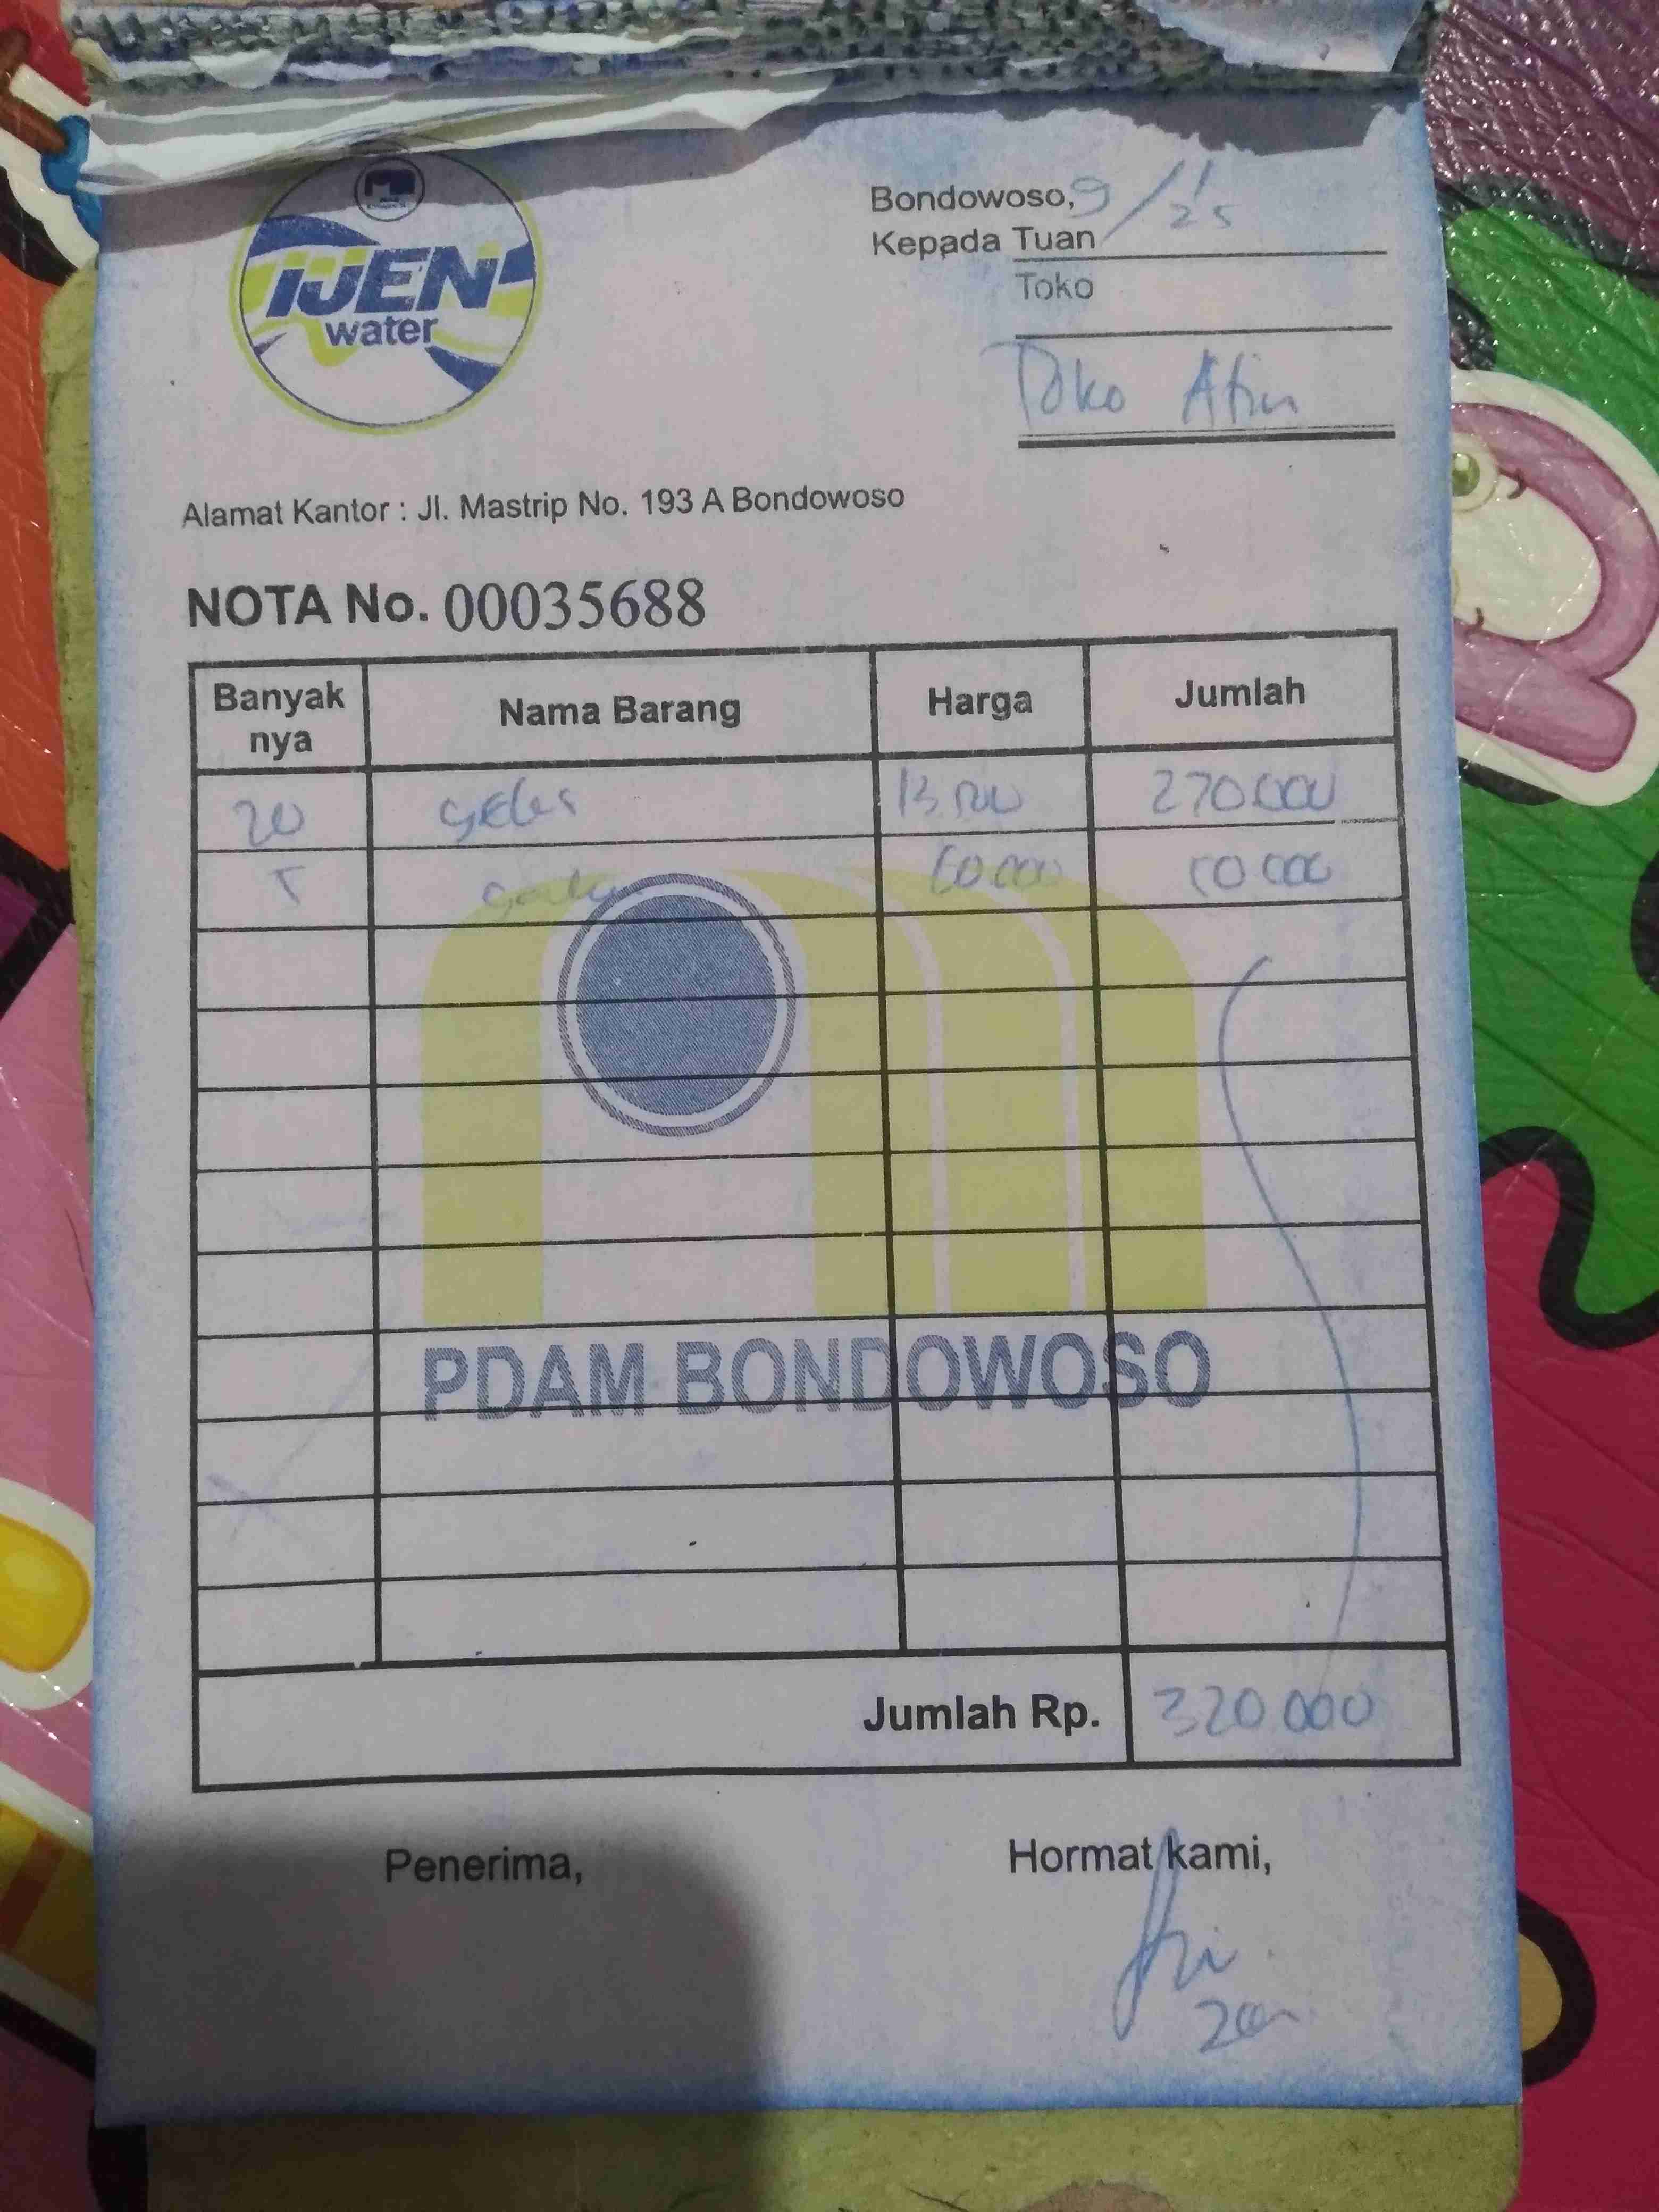 IJEN
water
Bondowoso, 9/1 25
Kepada Tuan
Toko
Toko
Alamat Kantor : Jl. Mastrip No. 193 A Bondowoso
NOTA No. 00035688
Banyak nya Nama Barang Harga Jumlah
20 gelas 13.500 270.000
5 60 000 50 000
PDAM BONDOWOSO
Jumlah Rp. 320 000
Penerima, Hormat kami,